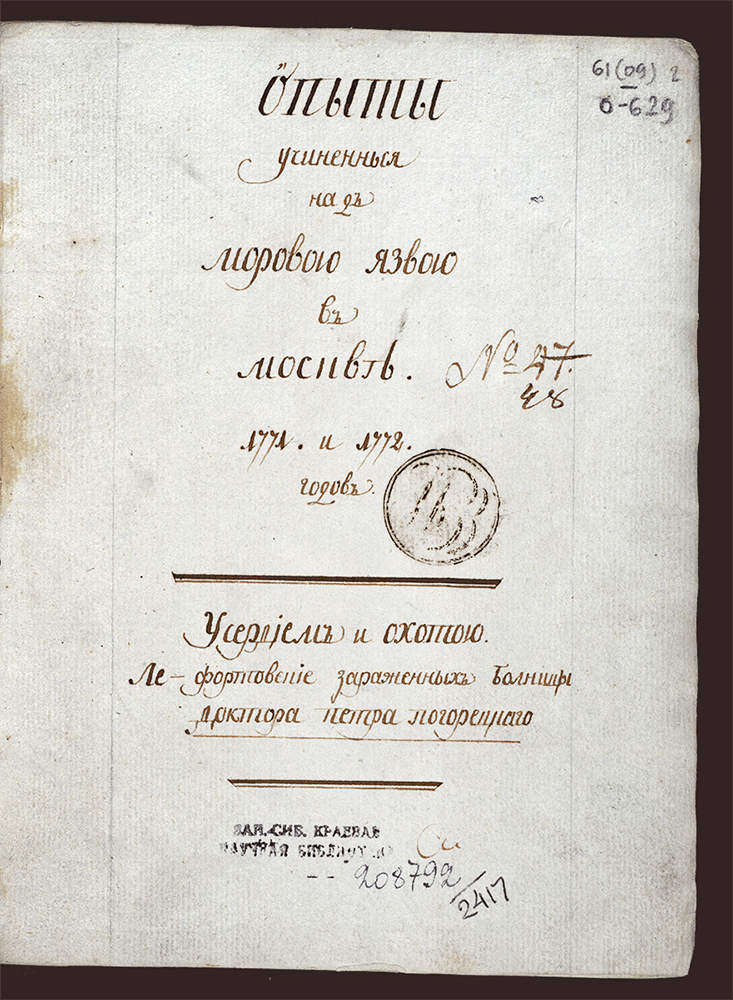 61(09) 2
О-629
Опыты
учиненныя
надъ
моровою язвою
въ
Москвѣ.
№ 47.
48
1771. и 1772.
годовъ.
Усердіемъ и охотою.
Ле-фортовскіе зараженныхъ Болницы
Доктора Петра Погорецкаго
ЗАП.-СИБ. КРАЕВАЯ
НАУЧНАЯ БИБЛИОТЕКА
208792
2417